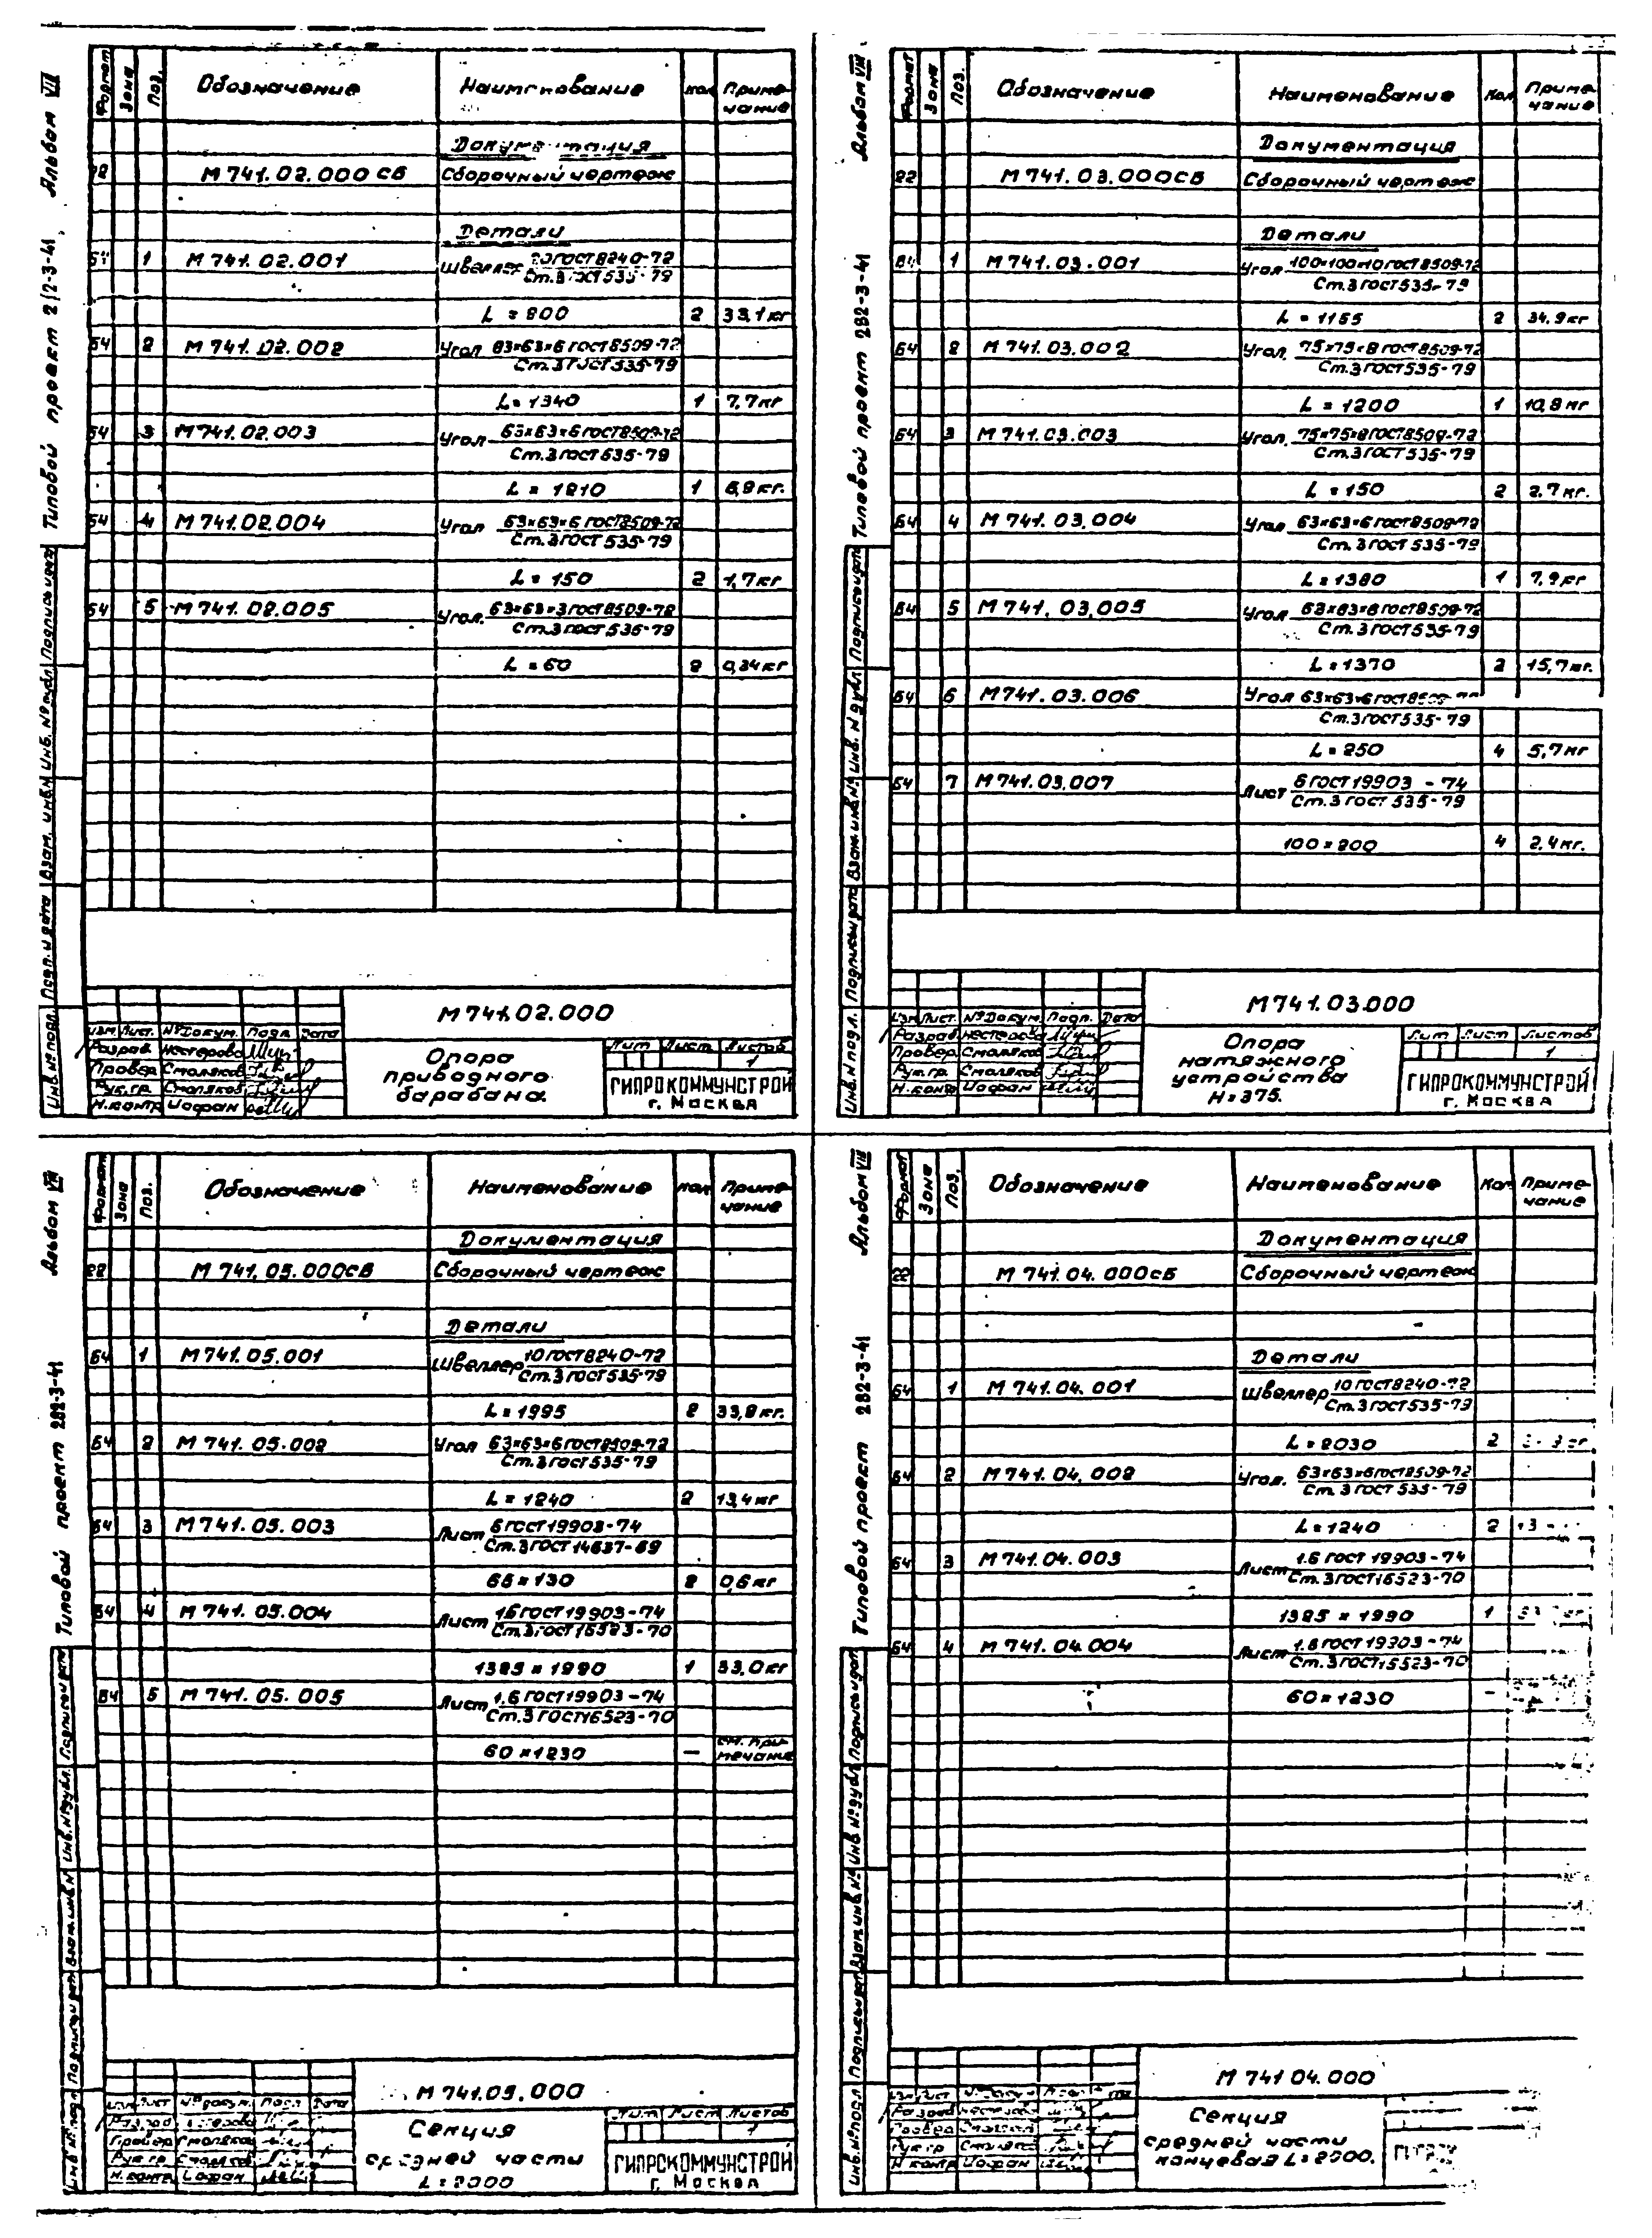 Альбом VII
Типовой проект 282-3-41
Формат Зона Поз. Обозначение Наименование Кол Приме-
чание
Документация
22 М 741.02.000 СБ Сборочный чертеж
Детали
Б4 1 М 741.02.001 Швеллер ГОСТ 8240-72
Ст.3 ГОСТ 535-79
L = 800 2 33,1 кг
Б4 2 М 741.02.002 Угол 63×63×6 ГОСТ 8509-72
Ст.3 ГОСТ 535-79
L = 1340 1 7,7 кг
Б4 3 М 741.02.003 Угол 63×63×6 ГОСТ 8509-72
Ст.3 ГОСТ 535-79
L = 1210 1 6,9 кг.
Б4 4 М 741.02.004 Угол 63×63×6 ГОСТ 8509-72
Ст.3 ГОСТ 535-79
L = 150 2 1,7 кг
Б4 5 М 741.02.005 Угол 63×63×3 ГОСТ 8509-72
Ст.3 ГОСТ 535-79
L = 60 2 0,34 кг
Инв.№ подл. Подп. и дата Взам. инв.№ Инв.№ дубл. Подпись и дата
М 741.02.000
Изм Лист. № Докум. Подп. Дата
Разраб. Нестерова
Провер Смоляков
Рук.гр. Смоляков
Н.контр Иофан
Опора
приводного
барабана.
Лит Лист Листов
1
ГИПРОКОММУНСТРОЙ
г. Москва
Альбом VIII
Типовой проект 282-3-41
Формат Зона Поз. Обозначение Наименование Кол. Приме-
чание
Документация
22 М 741.03.000СБ Сборочный чертеж
Детали
Б4 1 М 741.03.001 Угол 100×100×10 ГОСТ 8509-72
Ст.3 ГОСТ 535-79
L = 1155 2 34.9 кг
Б4 2 М 741.03.002 Угол. 75×75×8 ГОСТ 8509-72
Ст.3 ГОСТ 535-79
L = 1200 1 10,8 кг
Б4 3 М 741.03.003 Угол. 75×75×8 ГОСТ 8509-72
Ст.3 ГОСТ 535-79
L = 150 2 2,7 кг.
Б4 4 М 741.03.004 Угол 63×63×6 ГОСТ 8509-72
Ст.3 ГОСТ 535-79
L = 1380 1 7,9 кг
Б4 5 М 741.03.005 Угол 63×63×6 ГОСТ 8509-72
Ст.3 ГОСТ 535-79
L = 1370 2 15,7 кг.
Б4 6 М 741.03.006 Угол 63×63×6 ГОСТ 8509-72
Ст.3 ГОСТ 535-79
L = 250 4 5,7 кг
Б4 7 М 741.03.007 Лист 6 ГОСТ 19903-74
Ст.3 ГОСТ 535-79
100 × 200 4 2,4 кг.
Инв.№ подл. Подпись и дата Взам.инв.№ Инв.№ дубл. Подпись и дата
М 741.03.000
Изм Лист. № Докум. Подп. Дата
Разраб. Нестерова
Провер Смоляков
Рук.гр. Смоляков
Н.контр Иофан
Опора
натяжного
устройства
Н = 375.
Лит Лист Листов
1
ГИПРОКОММУНСТРОЙ
г. Москва
Альбом VIII
Типовой проект 282-3-41
Формат Зона Поз. Обозначение Наименование Кол Приме-
чание
Документация
22 М 741.05.000СБ Сборочный чертеж
Детали
Б4 1 М 741.05.001 Швеллер 10 ГОСТ 8240-72
Ст.3 ГОСТ 535-79
L = 1995 2 33,8 кг.
Б4 2 М 741.05.002 Угол 63×63×6 ГОСТ 8509-72
Ст.3 ГОСТ 535-79
L = 1240 2 13,4 кг
Б4 3 М 741.05.003 Лист 6 ГОСТ 19903-74
Ст.3 ГОСТ 14637-69
65 × 130 2 0,6 кг
Б4 4 М 741.05.004 Лист 1.6 ГОСТ 19903-74
Ст.3 ГОСТ 16523-70
1325 × 1990 1 33,0 кг
Б4 5 М 741.05.005 Лист 1.6 ГОСТ 19903-74
Ст.3 ГОСТ 16523-70
60 × 1230 — см. при-
мечание
Инв.№ подл Подпись и дата Взам.инв.№ Инв.№ дубл. Подпись и дата
М 741.05.000
Изм Лист № докум. Подп Дата
Разраб Нестерова
Провер Смоляков
Рук.гр Смоляков
Н.контр Иофан
Секция
средней части
L = 2000
Лит Лист Листов
1
ГИПРОКОММУНСТРОЙ
г. Москва
Альбом VIII
Типовой проект 282-3-41
Формат Зона Поз. Обозначение Наименование Кол Приме-
чание
Документация
22 М 741.04.000СБ Сборочный чертеж
Детали
Б4 1 М 741.04.001 Швеллер 10 ГОСТ 8240-72
Ст.3 ГОСТ 535-79
L = 2030 2
Б4 2 М 741.04.002 Угол. 63×63×6 ГОСТ 8509-72
Ст.3 ГОСТ 535-79
L = 1240 2 13
Б4 3 М 741.04.003 Лист 1.6 ГОСТ 19903-74
Ст.3 ГОСТ 16523-70
1325 × 1990 1
Б4 4 М 741.04.004 Лист 1.6 ГОСТ 19903-74
Ст.3 ГОСТ 16523-70
60 × 1230
Инв.№ подл Подпись и дата Взам.инв.№ Инв.№ дубл. Подпись и дата
М 741 04.000
Изм Лист
Разраб Нестерова
Провер Смоляков
Рук.гр Смоляков
Н.контр Иофан
Секция
средней части
концевая L = 2000.